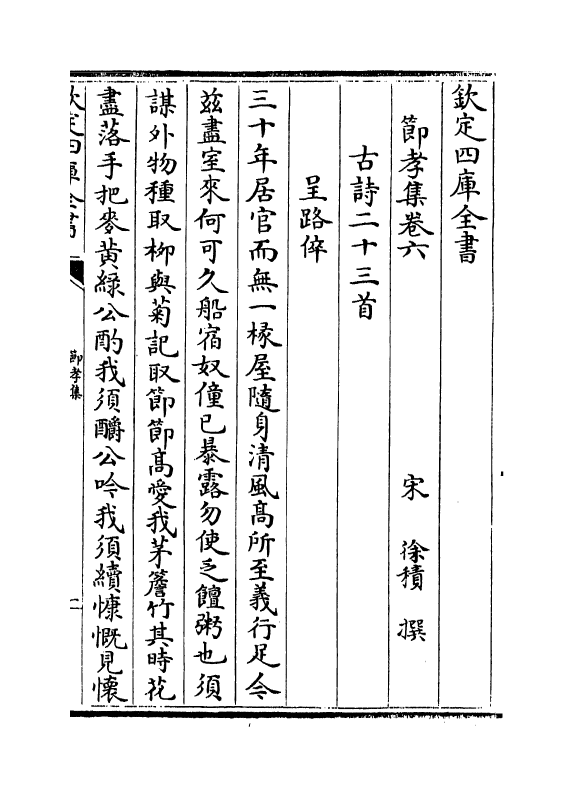 欽定四庫全書
節孝集卷六
宋　徐積　撰
古詩二十三首
呈路倅
三十年居官而無一椽屋隨身清風髙所至義行足今
兹盡室來何可久船宿奴僮已暴露勿使乏饘粥也須
謀外物種取柳與菊記取節節髙愛我茅簷竹其時花
盡落手把麥黄緑公酌我須釂公吟我須續慷慨見懷
欽定四庫全書
節孝集
一